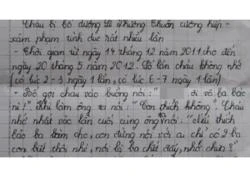 Cháu bị bố dượng là Nhương Thuần cưỡng hiếp -
xâm phạm tình dục rất nhiều lần
- Thời gian từ ngày 14 tháng 12 năm 2011 cho đến
ngày 20 tháng 5 năm 2012. Số lần cháu không nhớ
(có lúc 2-3 ngày 1 lần, có lúc 6-7 ngày 1 lần)
- Bố gọi cháu vào buồng nói: " đi vô, ra bác
nì!". Khi làm ông ta nói: "Con thích không". Cháu
nhớ nhất vào lần cuối cùng ông nói: "Nếu thích
bảo ba làm cho, con đừng nói với ai chỉ có 2 ba
con biết thôi nhé, nói là ba chết đấy, nhớ chưa?"